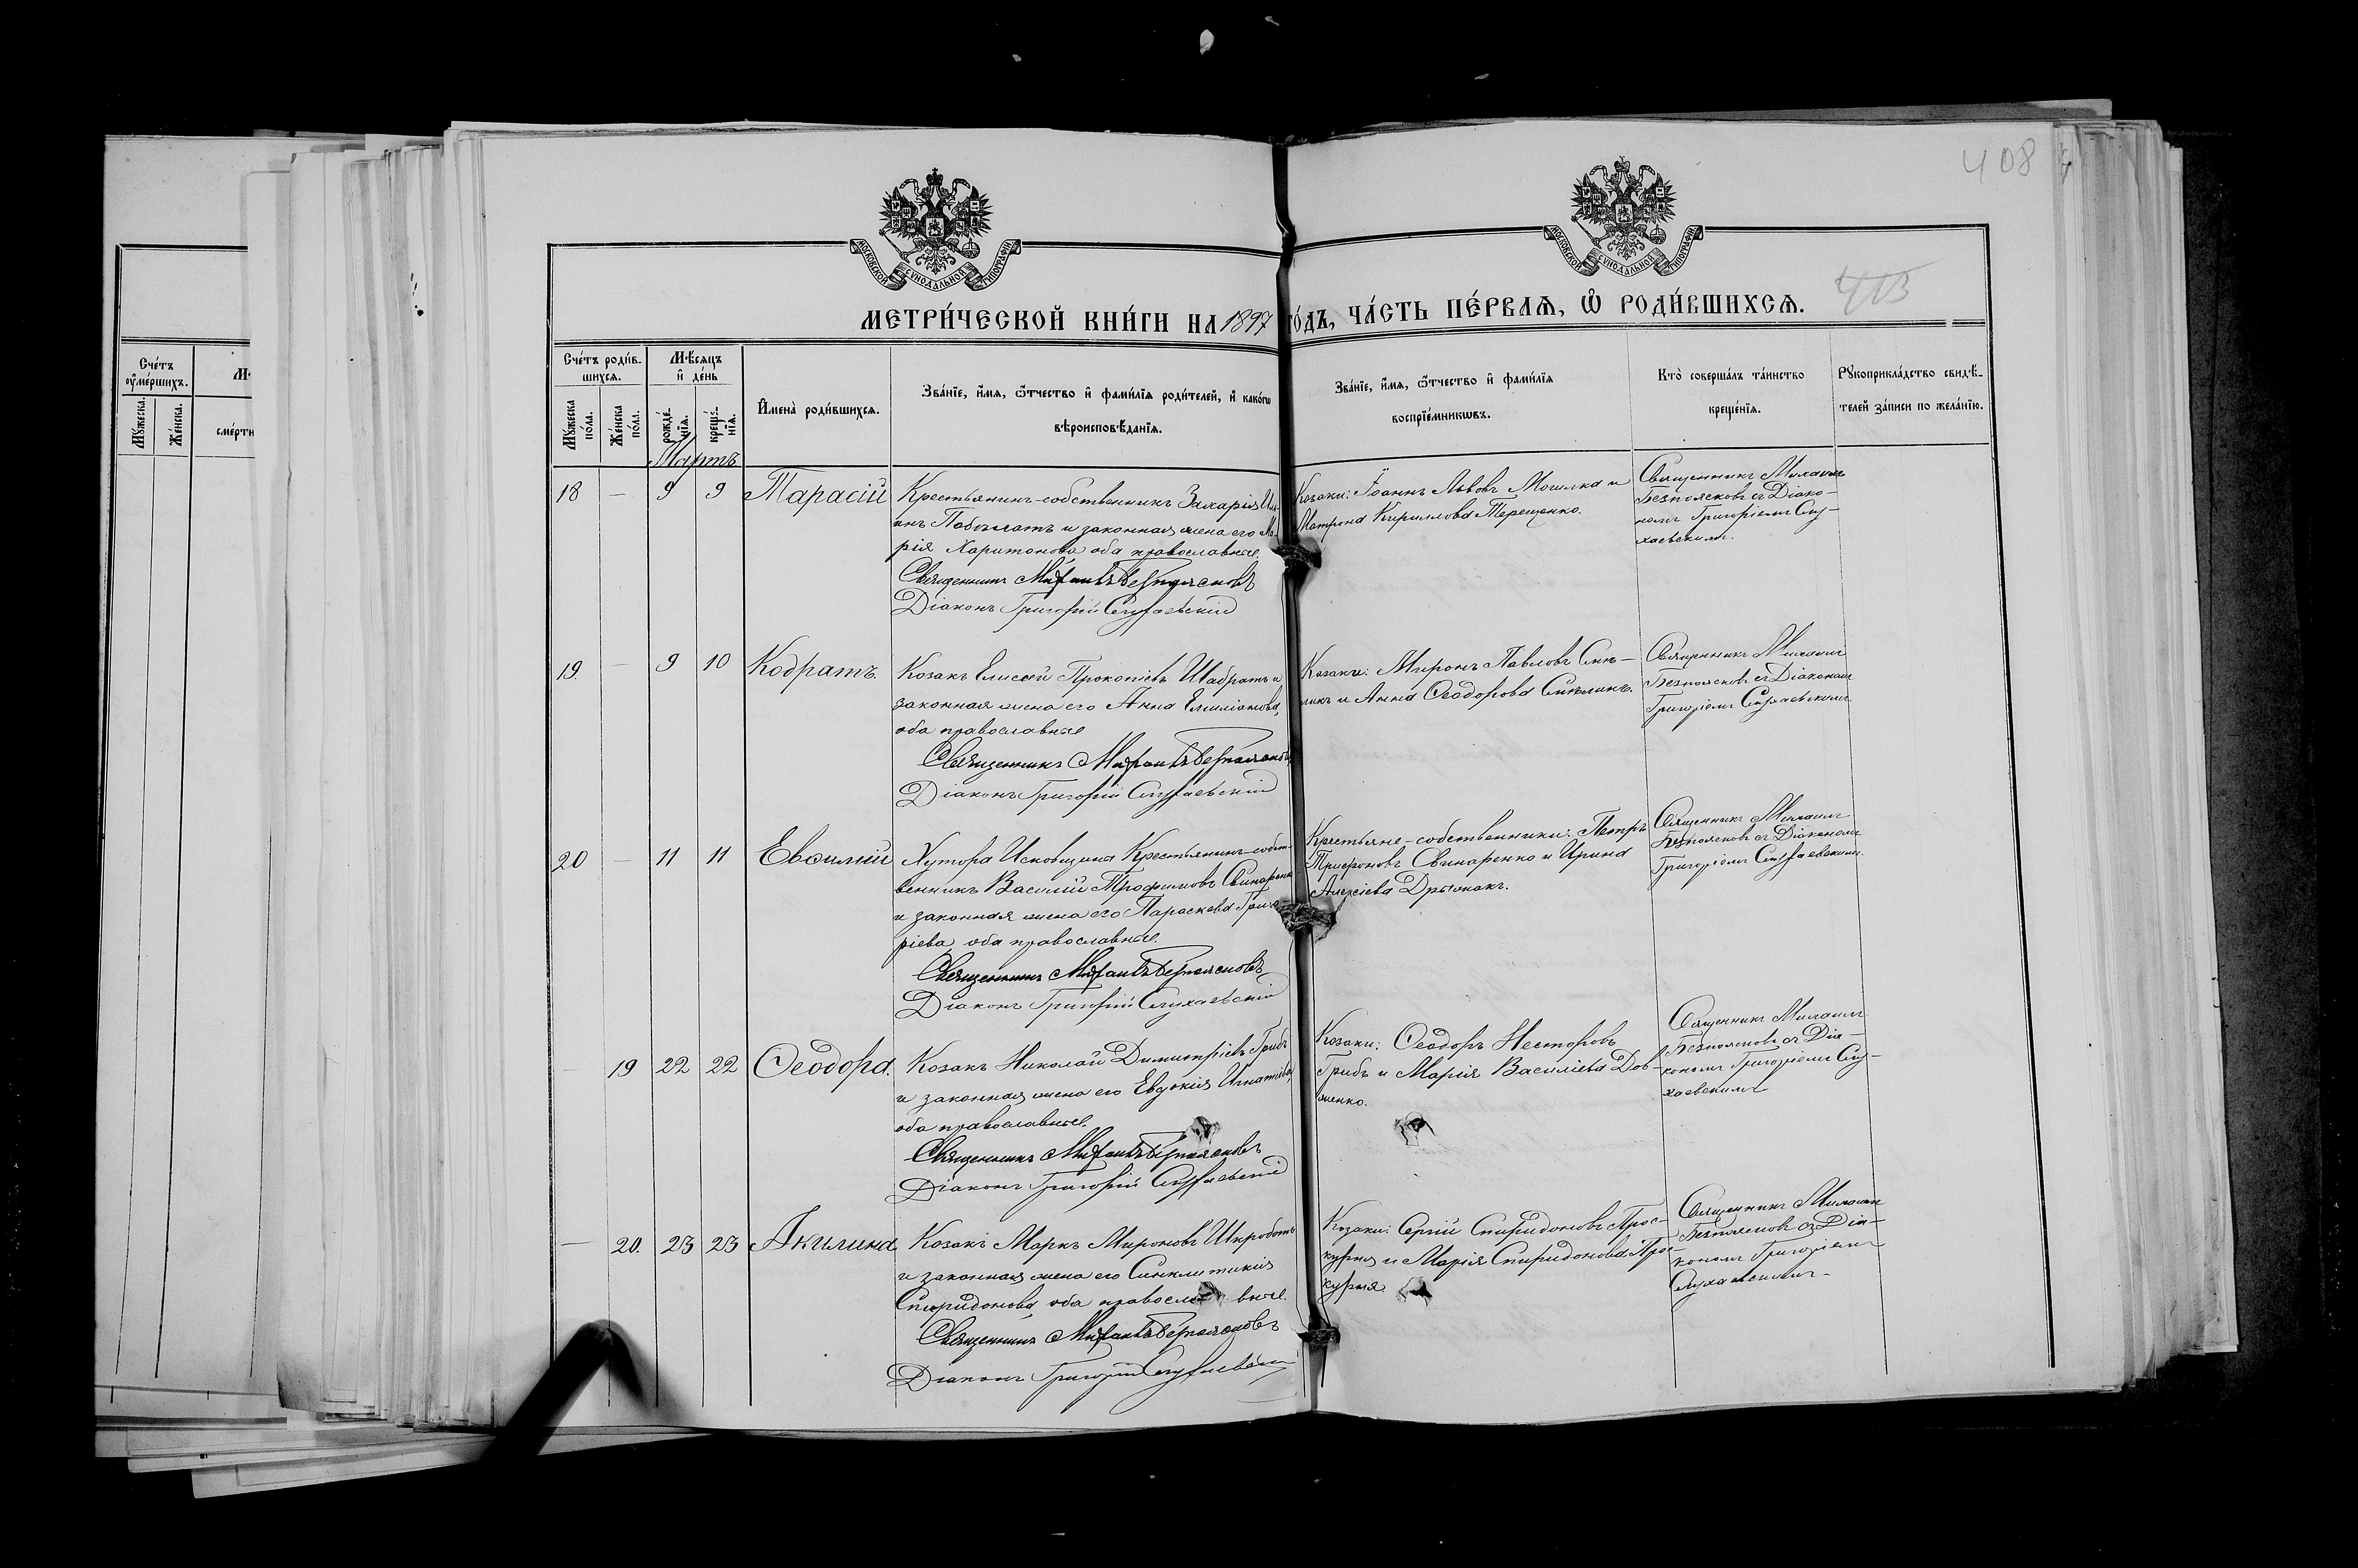 408
МОСКОВСКОЙ СУНОДАЛЬНОЙ ТИПОГРАФІИ
МОСКОВСКОЙ СУНОДАЛЬНОЙ ТИПОГРАФІИ
413
МЕТРИ́ЧЕСКОЙ КНИ́ГИ НА 1897 ГО́ДЪ, ЧА́СТЬ ПЕ́РВАѦ, Ѡ҆ РОДИ́ВШИХСѦ.
Сче́тъ ᲂу҆ме́ршихъ.
Мꙋ́жеска.
Же́нска.
сме́рти
Сче́тъ роди́в-
шихсѧ.
Мꙋ́жеска по́ла.
Же́нска по́ла.
Мѣ́сѧцъ
и҆ де́нь
рожде́нїѧ.
креще́нїѧ.
И҆мена̀ роди́вшихсѧ.
Зва́нїе, и҆́мѧ, ѻ҆́тчество и҆ фами́лїѧ роди́телей, и҆ како́гѡ
вѣроисповѣ́данїѧ.
Зва́нїе, и҆́мѧ, ѻ҆́тчество и҆ фами́лїѧ
воспрїе́мникѡвъ.
Кто̀ соверша́лъ та́инство
креще́нїѧ.
Рꙋкоприкла́дство свидѣ́-
телей за́писи по жела́нїю.
Мартъ
18 — 9 9 Тарасій
Крестьянинъ-собственникъ Захарія
и законная жена его Ма-
рія Харитонова оба православные.
Священникъ Михаилъ Безпоясковъ
Діаконъ Григорій Слухаевскій
Козаки: Іоаннъ Львовъ Могилка и
Матрона Кириллова Терещенко.
Священникъ Михаилъ
Безпоясковъ съ Діако-
номъ Григоріемъ Слу-
хаевскимъ.
19. — 9 10 Кодратъ.
Козакъ Елисей Прокопіевъ Шабратъ и
законная жена его Анна Емиліанова,
оба православные
Священникъ Михаилъ Безпоясковъ
Діаконъ Григорій Слухаевскій
Козаки: Миронъ Павловъ Смѣ-
ликъ и Анна Ѳеодорова Смѣликъ.
Священникъ Михаилъ
Безпоясковъ съ Діакономъ
Григоріемъ Слухаевскимъ
20 — 11 11 Евѳимій
Хутора Исковщина Крестьянинъ-собст-
венникъ Василій Трофимовъ Свинаренко
и законная жена его Параскева Григо-
ріева оба православные.
Священникъ Михаилъ Безпоясковъ
Діаконъ Григорій Слухаевскій
Крестьяне-собственники: Петръ
Трифоновъ Свинаренко и Ирина
Алексіева Дрыжакъ.
Священникъ Михаилъ
Безпоясковъ съ Діакономъ
Григоріемъ Слухаевскимъ.
— 19 22 22 Ѳеодора.
Козакъ Николай Димитріевъ Грибъ
и законная жена его Евдокія Игнатіева,
оба православные.
Священникъ Михаилъ Безпоясковъ
Діаконъ Григорій Слухаевскій
Козаки: Ѳеодоръ Несторовъ
Грибъ и Марія Василіева Дов-
женко.
Священникъ Михаилъ
Безпоясковъ съ Діа-
кономъ Григоріемъ Слу-
хаевскимъ
— 20. 23 23 Акилина
Козакъ Маркъ Мироновъ Шкроботъ
и законная жена его Синклитикія
Спиридонова, оба православные.
Священникъ Михаилъ Безпоясковъ
Діаконъ Григорій Слухаевскій
Козаки: Сергій Спиридоновъ Прос-
курня и Марія Спиридонова Прос-
курня.
Священникъ Михаилъ
Безпоясковъ съ Діа-
кономъ Григоріемъ
Слухаевскимъ